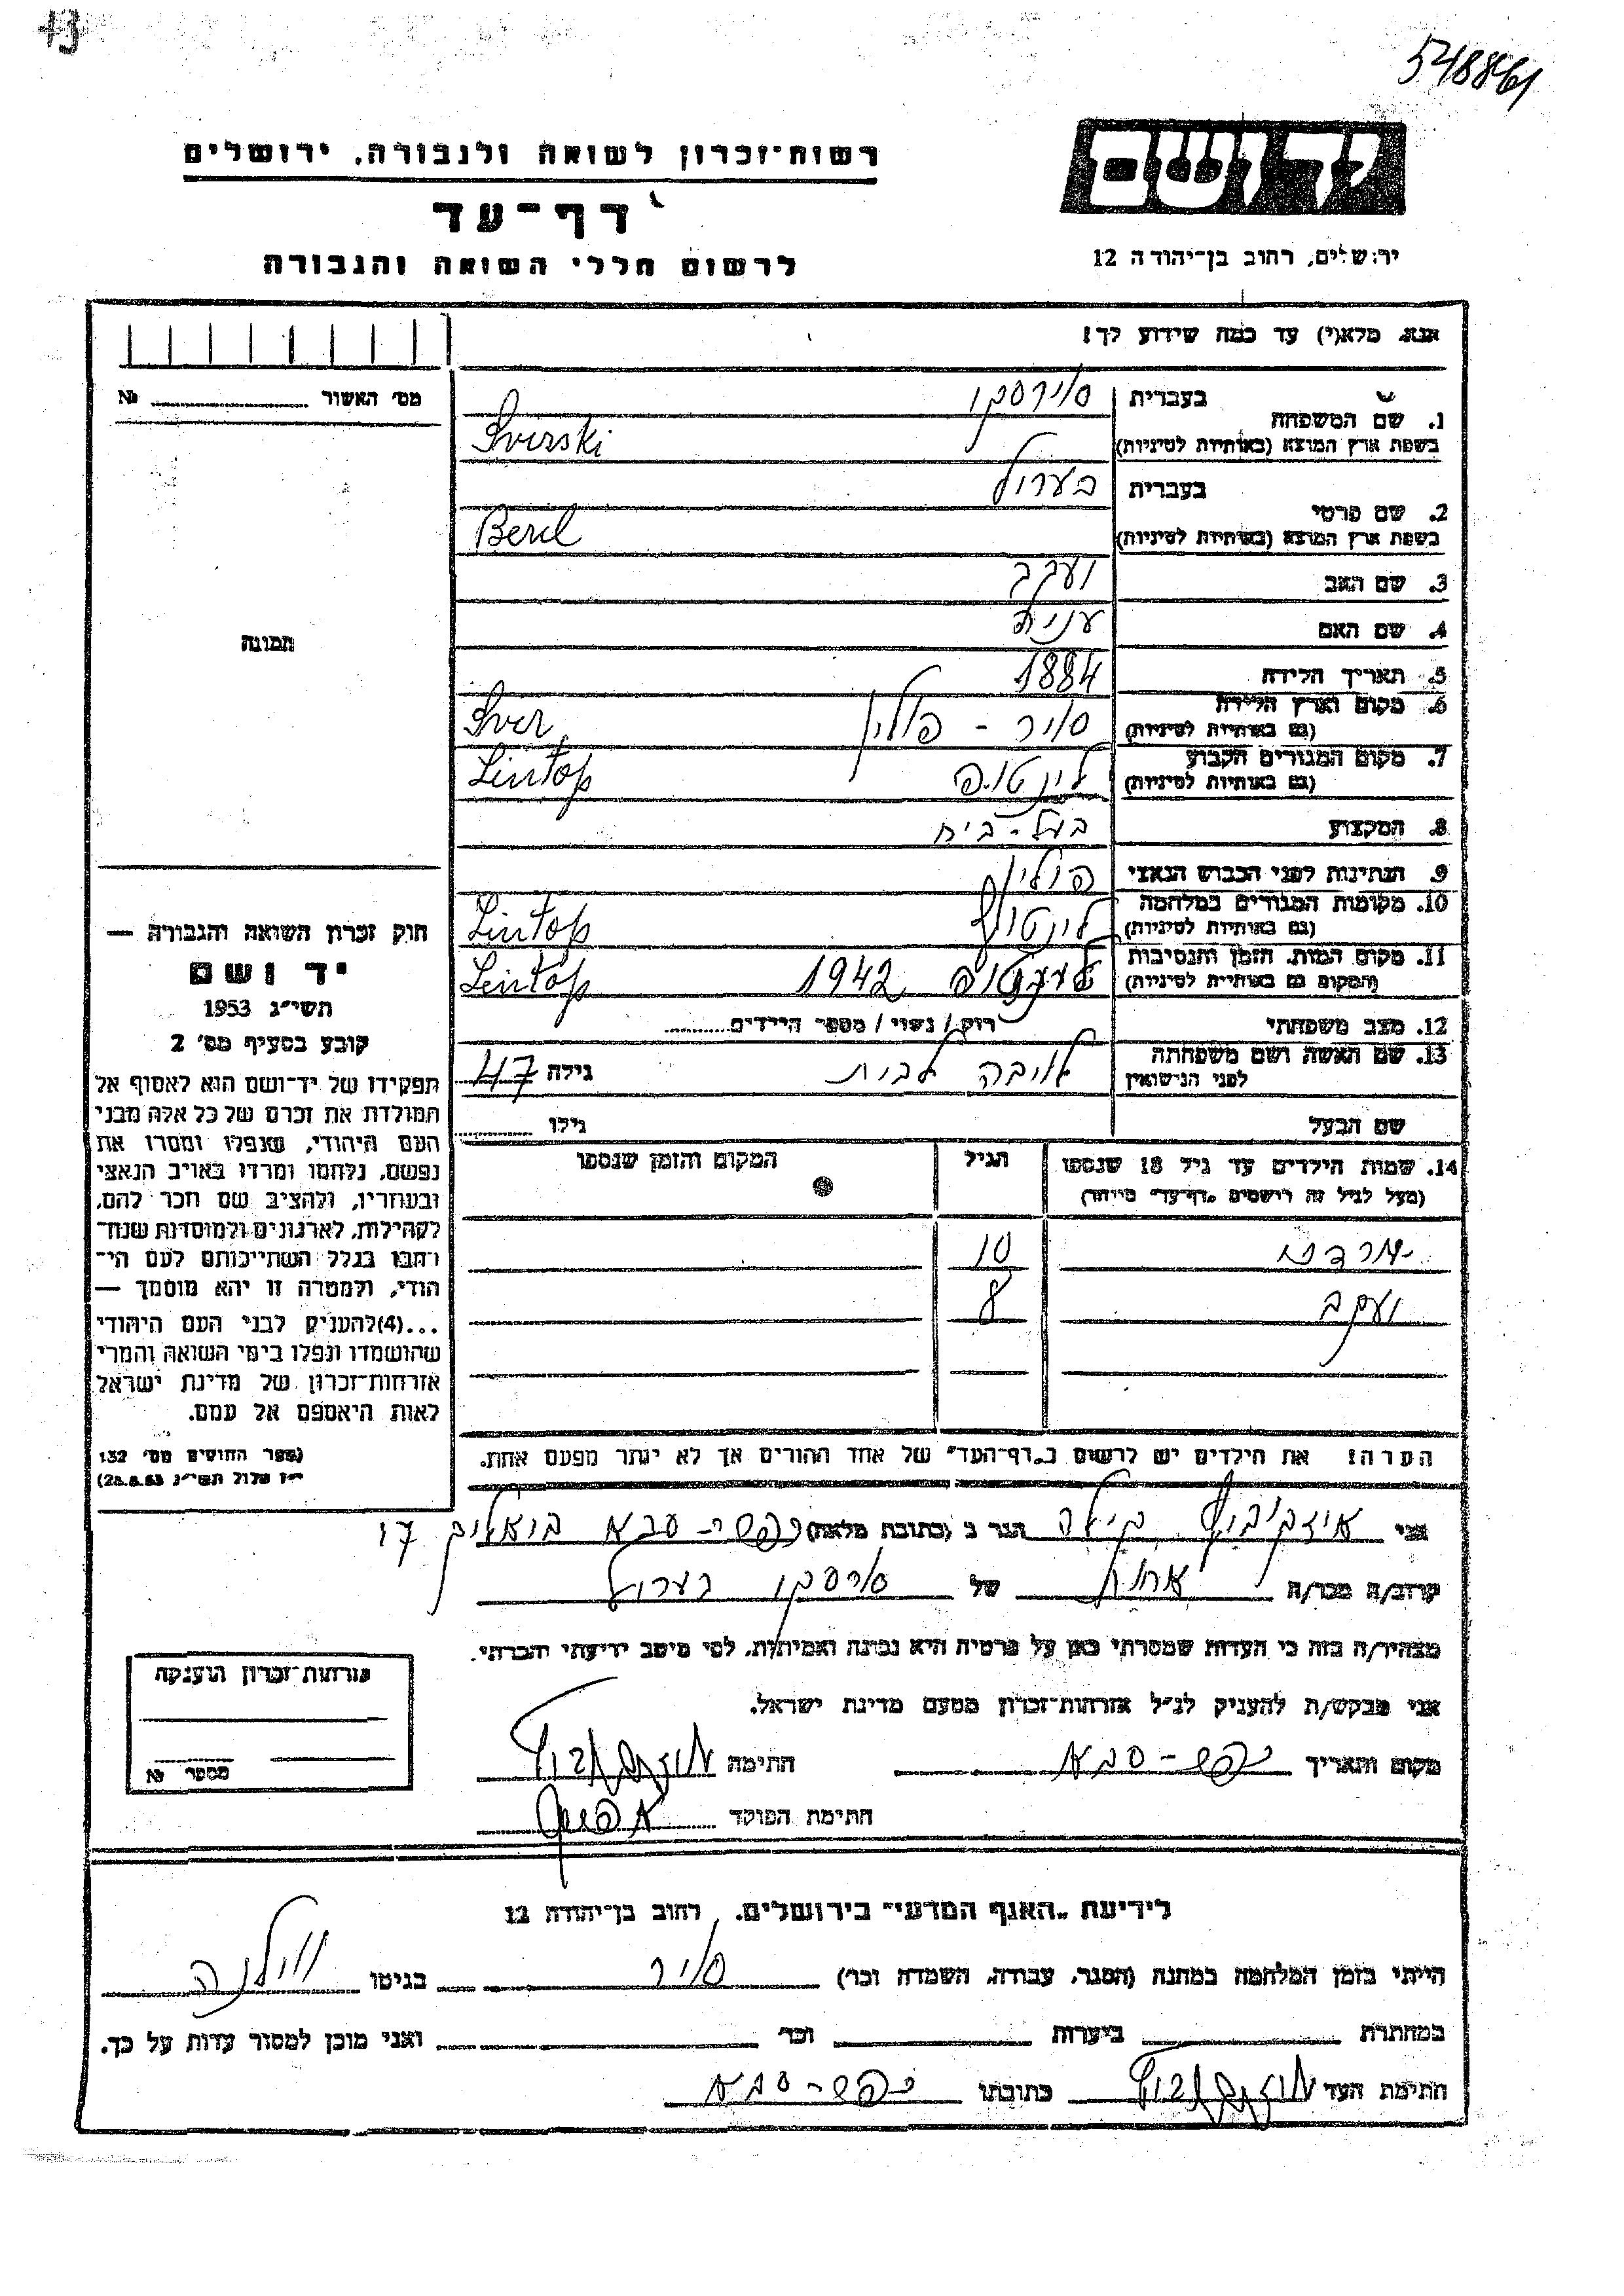 43
548861
יד ושם
רשות־זכרון לשואה ולגבורה, ירושלים
דף־עד
לרשום חללי השואה והגבורה
ירושלים, רחוב בן־יהודה 12
אנא, מלא(י) עד כמה שידוע לך!
מס׳ האשור № 
1. שם המשפחה
בעברית סוירסקי
בשפת ארץ המוצא (באותיות לטיניות) Sverski
2. שם פרטי
בעברית בערול
בשפת ארץ המוצא (באותיות לטיניות) Berel
3. שם האב יעקב
4. שם האם
5. תאריך הלידה 1884
6. מקום וארץ הלידה סויר - פולין
(גם באותיות לטיניות) Sver
7. מקום המגורים הקבוע לינטופ
(גם באותיות לטיניות) Lintop
8. המקצוע בעל-בית
9. הנתינות לפני הכבוש הנאצי פולין
10. מקומות המגורים במלחמה לינטופ
(גם באותיות לטיניות) Lintop
11. מקום המות, הזמן והנסיבות 1942
(המקום גם באותיות לטיניות) Lintop
12. מצב משפחתי רווק / נשוי / מספר הילדים
13. שם האשה ושם משפחתה
לפני הנישואין ליבה לבית גילה 47
שם הבעל גילו
14. שמות הילדים עד גיל 18 שנספו
(מעל לגיל זה רושמים „דף־עד״ מיוחד)
הגיל
המקום והזמן שנספו
10
יעקב 8
הערה! את הילדים יש לרשום ב„דף־העד״ של אחד ההורים אך לא יותר מפעם אחת.
תמונה
חוק זכרון השואה והגבורה —
יד ושם
תשי״ג 1953
קובע בסעיף מס׳ 2
תפקידו של יד־ושם הוא לאסוף אל
המולדת את זכרם של כל אלה מבני
העם היהודי, שנפלו ומסרו את
נפשם, נלחמו ומרדו באויב הנאצי
ובעוזריו, ולהציב שם וזכר להם,
לקהילות, לארגונים ולמוסדות שנח־
רבו בגלל השתייכותם לעם הי־
הודי, ולמטרה זו יהא מוסמך —
...(4) להעניק לבני העם היהודי
שהושמדו ונפלו בימי השואה והמרי
אזרחות־זכרון של מדינת ישראל
לאות היאספם אל עמם.
(ספר החוקים מס׳ 132
י״ז אלול תשי״ג 28.8.53)
אני אייזיקוביץ ביילה הגר ב (כתובת מלאה) כפר-סבא ביאליק 17
קרוב/ה מכר/ה אחות של סוירסקי בערול
מצהיר/ה בזה כי העדות שמסרתי כאן על פרטיה היא נכונה ואמיתית, לפי מיטב ידיעתי והכרתי.
אני מבקש/ת להעניק לנ״ל אזרחות־זכרון מטעם מדינת ישראל.
מקום ותאריך כפר-סבא חתימה
חתימת הפוקד
אזרחות־זכרון הוענקה
מספר №
לידיעת „האגף המדעי״ בירושלים, רחוב בן־יהודה 12
הייתי בזמן המלחמה במחנה (הסגר, עבודה, השמדה וכו׳) סויר בגיטו ווילנה
במחתרת ביערות וכו׳ ואני מוכן למסור עדות על כך.
חתימת העד כתובתו כפר-סבא